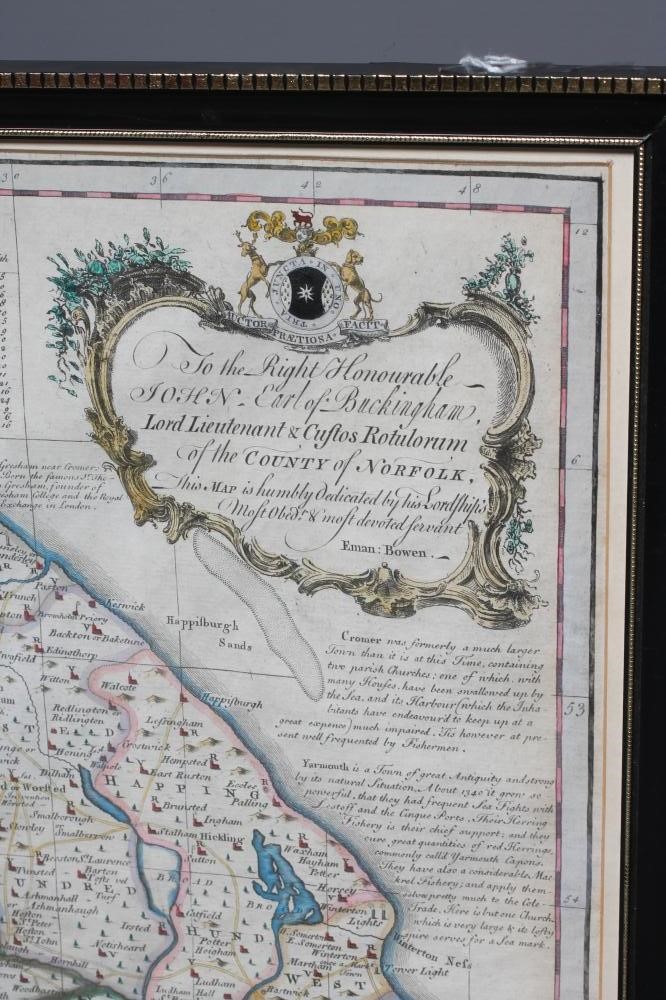 30 36 42 48
12
TRIA JUNCTA IN UNO
AUCTOR PRÆTIOSA FACIT
To the Right Honourable
IOHN Earl of Buckingham,
Lord Lieutenant & Custos Rotulorum
of the COUNTY of NORFOLK,
This MAP is humbly Dedicated by his Lordship's
Most Obedt. & most devoted servant
Eman: Bowen.
6
Gresham near Cromer.
Born the famous Sr. Tho-
Gresham, founder of
Gresham College and the Royal
Exchange in London.
Cromer was formerly a much larger
Town than it is at this Time, containing
two parish Churches; one of which, with
many Houses, have been swallowed up by
the Sea, and its Harbour (which the Inha-
bitants have endeavour'd to keep up at a
great expence) much impaired. Tis however at pre-
sent well frequented by Fishermen.
53
Yarmouth is a Town of great Antiquity and strong
by its natural Situation. About 1340 it grew so
powerful, that they had frequent Sea Fights with
Lestoff and the Cinque Ports. Their Herring
Fishery is their chief support; and they
cure great quantities of red Herrings,
commonly calld Yarmouth Capons.
They have also a considerable Mac
krel Fishery; and apply them-
selves pretty much to the Cole-
Trade. Here is but one Church,
which is very large & its lofty
spire serves for a Sea mark.
54
Happisburgh
Sands
Paston
Keswick
Bromholm Priory
Backton or Baketune
Edingthorp
Witton
Walcote
Happisburgh
Redlington or
Ridlington
Lessingham
Crostwick
Honing
Hempsted
East Ruston
Eccles
Palling
HAPPING
Dilham
Brunsted
Ingham
Smalborough
Smalborrow
Stalham
Hickling
Waxham
Sutton
Beeston St. Laurence
Barton
Turf
Ashmanhall
or
Ashmanhaugh
BROAD
Hayham
Potter
Horsey
Winterton
Lights
Catfield
Irsted
HUND
Hofton
St. Peter
Hofton
St. John
Neatisheard
Potter
Heigham
W. Somerton
E. Somerton
Winterton
once a Mark
Town
Martham
Winterton Ness
Tower Light
Horning
Ludham
Ludham Hall
Bastwick
WEST
Woodbastwick